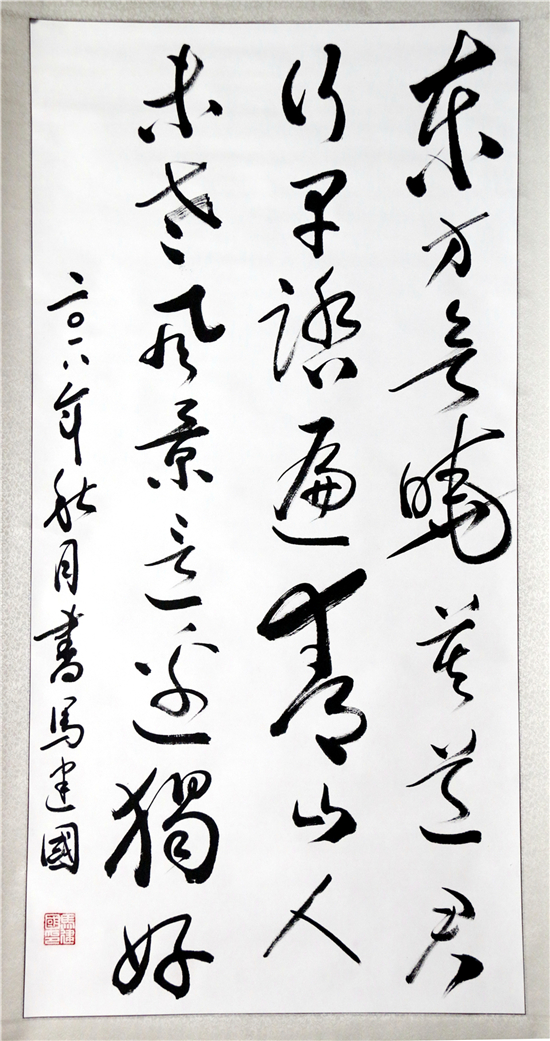 東方欲曉莫道君
行早踏遍青山人
未老風景這邊獨好
二〇一八年秋月書馬建國
馬建國印